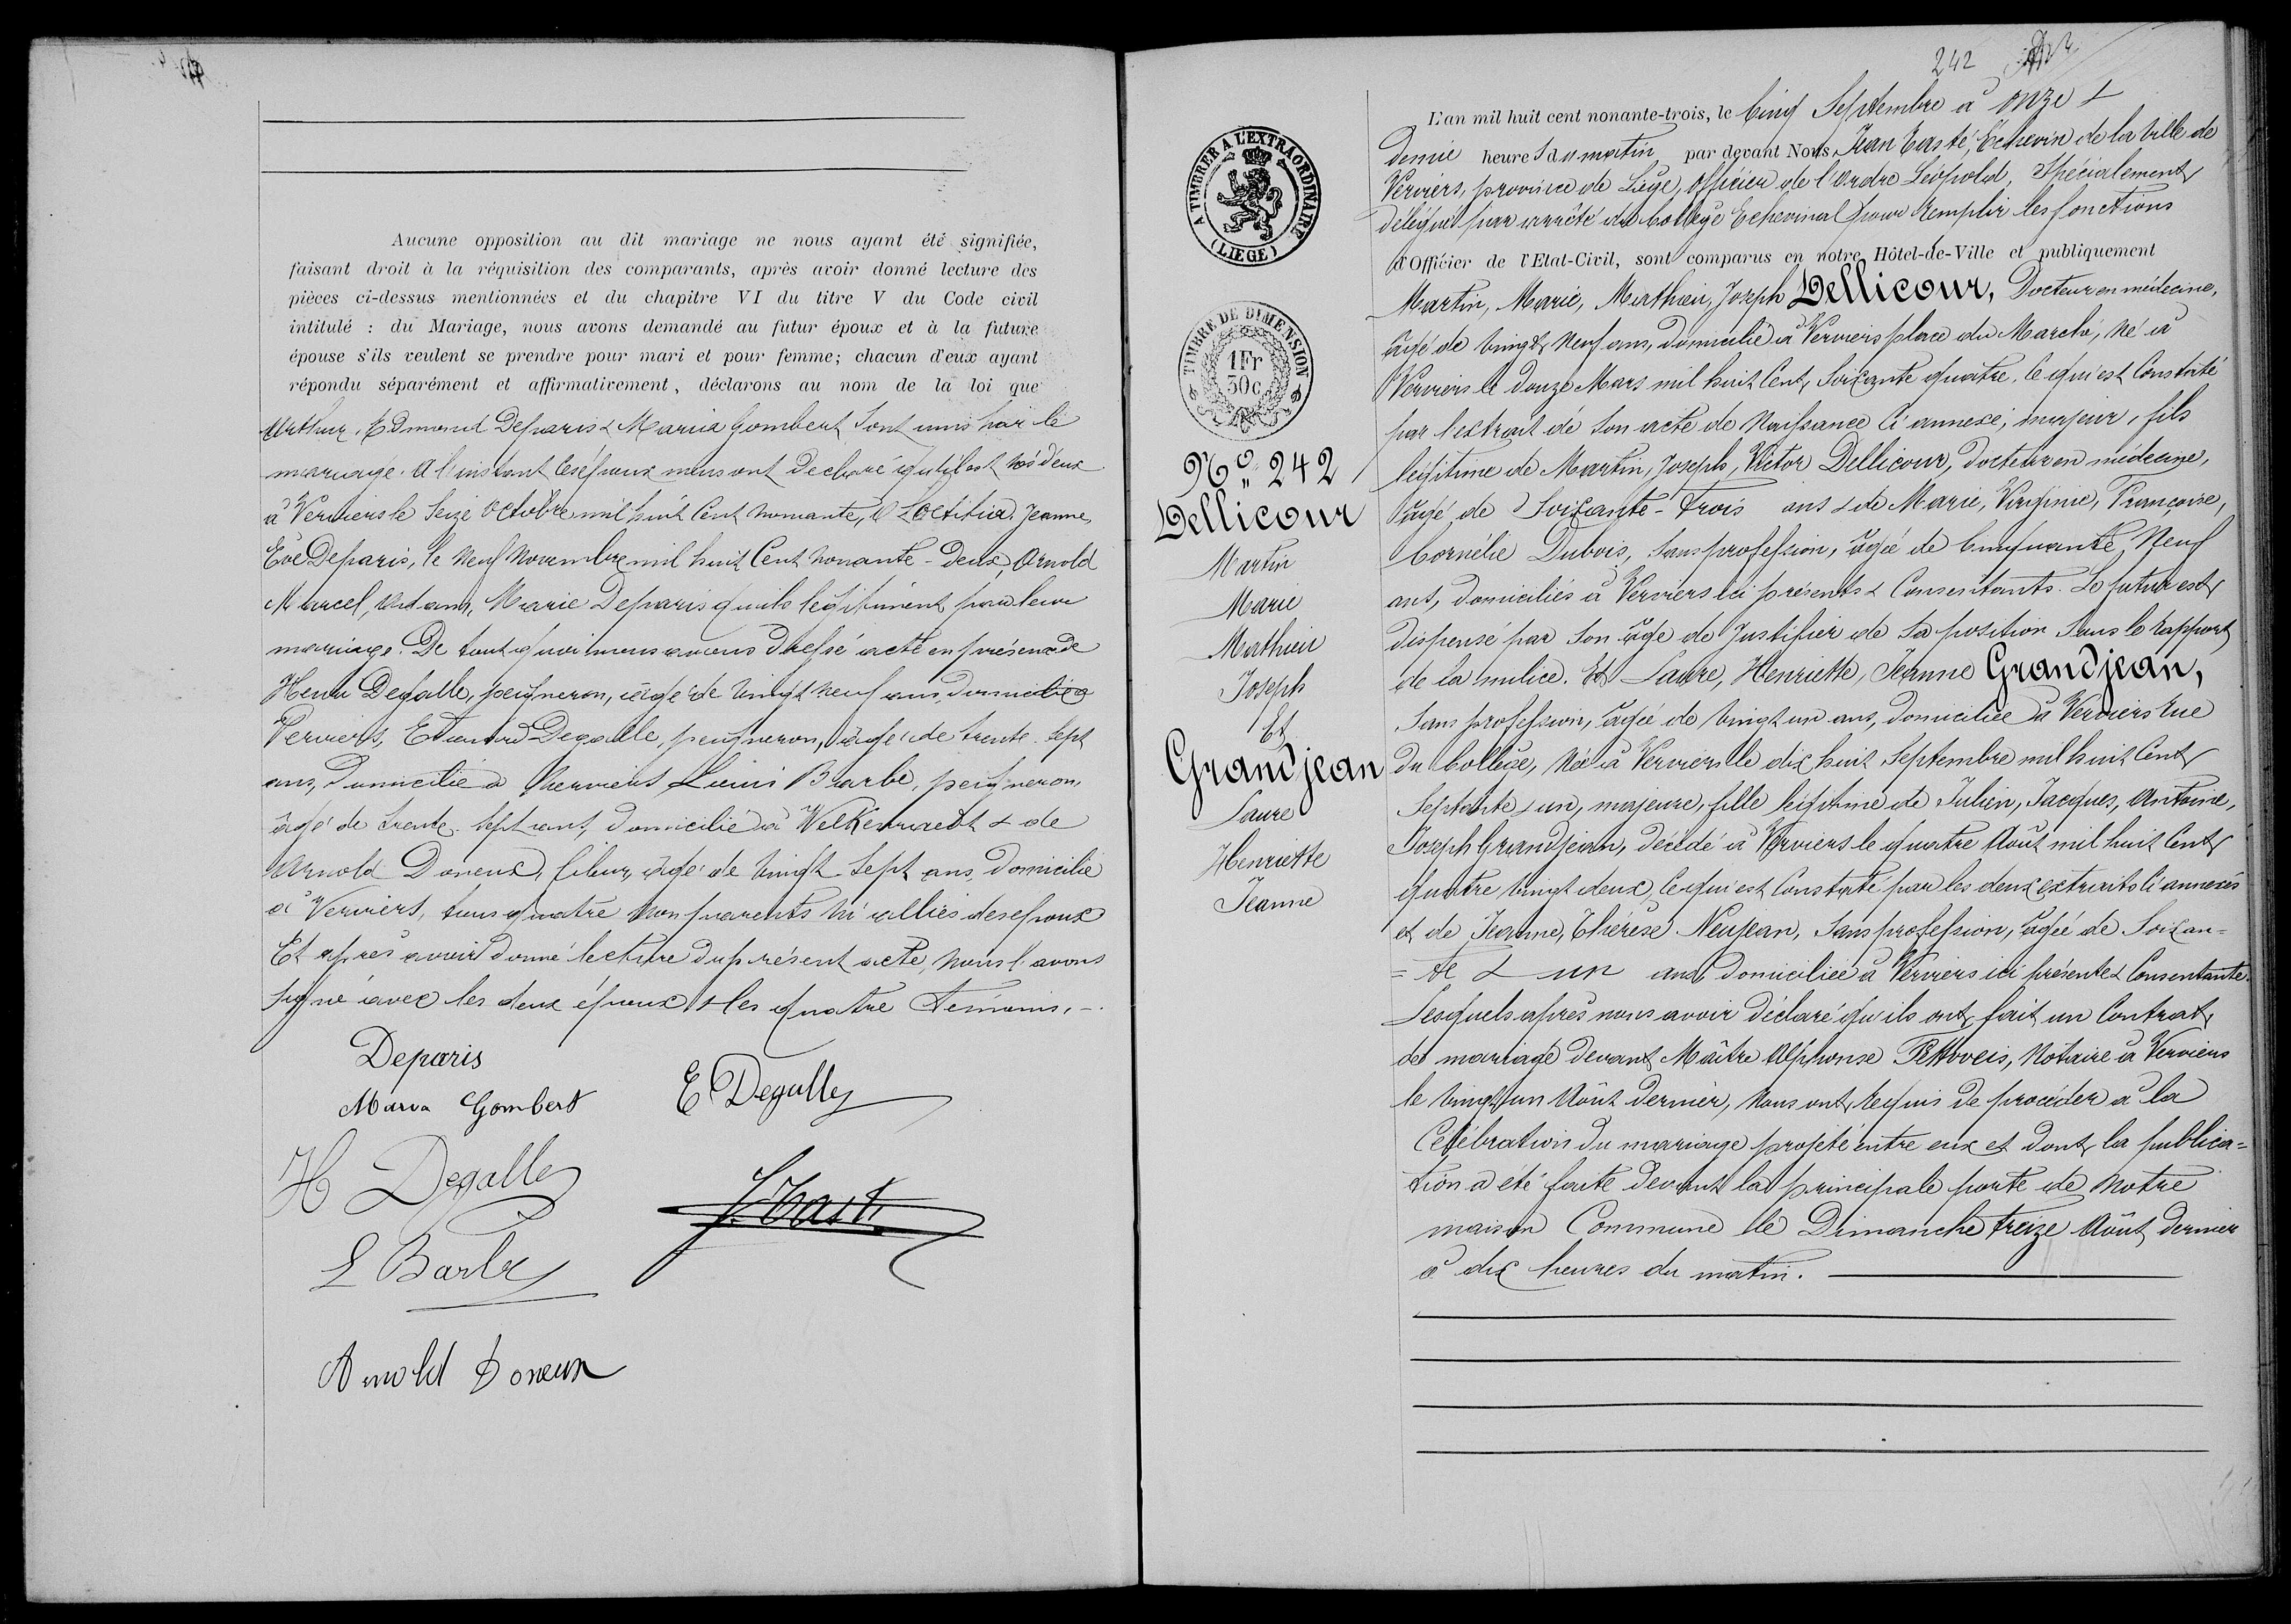 Aucune opposition au dit mariage ne nous ayant été signifiée,
faisant droit à la réquisition des comparants, après avoir donné lecture des
pièces ci-dessus mentionnées et du chapitre VI du titre V du Code civil
intitulé : du Mariage, nous avons demandé au futur époux et à la future
épouse s'ils veulent se prendre pour mari et pour femme; chacun d'eux ayant
répondu séparément et affirmativement, déclarons au nom de la loi que
Arthur, Edmond Deparis & Maria Gombert sont unis par le
mariage. A l'instant les époux nous ont déclaré qu'il est nés d'eux
à Verviers le seize Octobre mil huit cent nonante, Laetitia, Jeanne,
Eve Deparis, le neuf Novembre mil huit Cent nonante-deux, Arnold
Marcel, Marie Deparis qu'ils légitiment par leur
mariage. De tout quoi nous avons dressé acte en présence de
Henri Degalle, peigneron, âgé de vingt neuf ans, domicilié à
Verviers, Edouard Degalle, peigneron, âgé de trente-sept
ans, domicilié à Verviers Louis Barbe, peigneron,
âgé de trente-sept ans, domicilié à Welkenraedt & de
Arnold Doneux, fileur, âgé de vingt-sept ans, domicilié
à Verviers, tous quatre non parents ni alliés des époux
Et après avoir donné lecture du présent acte, nous l'avons
signé avec les deux époux & les quatre témoins. -
Deparis
Maria Gombert
E Degalle
H Degalle
L Barbe
Arnold Doneux
242
A TIMBRER A L'EXTRAORDINAIRE
(LIEGE)
TIMBRE DE DIMENSION
1Fr
30c
No 242
Dellicour
Martin
Marie
Mathieu
Joseph
Et
Grandjean
Laure
Henriette
Jeanne
L'an mil huit cent nonante-trois, le Cinq Septembre à onze &
demie heures du matin par devant Nous, Jean Tasté, Echevin de la Ville de
Verviers, province de Liège, Officier de l'Ordre Léopold, Spécialement
délégué par arrêté du Collège Echevinal pour remplir les fonctions
d'Officier de l'Etat-Civil, sont comparus en notre Hôtel-de-Ville et publiquement
Martin, Marie, Mathieu, Joseph Dellicour, Docteur en médecine,
âgé de vingt neuf ans, domicilié à Verviers place du Marché, né à
Verviers le douze Mars mil huit Cent soixante quatre, ce qui est Constaté
par l'extrait de son acte de Naissance Ci annexé, majeur, fils
légitime de Martin, Joseph, Victor Dellicour, docteur en médecine,
âgé de Soixante-trois ans & de Marie, Virginie, Françoise,
Cornélie Dubois, sans profession, âgée de Cinquante Neuf
ans, domiciliés à Verviers ici présents & Consentants. Le futur est
dispensé par son âge de Justifier de sa position sous le rapport
de la milice. Et Laure, Henriette, Jeanne Grandjean,
sans profession, âgée de vingt un ans, domiciliée à Verviers rue
du Collège, née à Verviers le dix huit Septembre mil huit Cent
septante & un, majeure, fille légitime de Julien, Jacques, Antoine,
Joseph Grandjean, décédé à Verviers le quatre Août mil huit Cent
quatre vingt deux, Ce qui est Constaté par les deux extraits Ci annexés
et de Jeanne, Thérèse Neujean, sans profession, âgée de Soixan=
=te & un ans domiciliée à Verviers ici présente & Consentante.
Lesquels après nous avoir déclaré qu'ils ont fait un Contrat
de mariage devant Maître Alphonse, Notaire à Verviers
le vingt un Août dernier, nous ont requis de procéder à la
Célébration du mariage projeté entre eux et dont la publica=
tion a été faite devant la principale porte de notre
maison Commune le Dimanche treize Août dernier
à dix heures du matin.